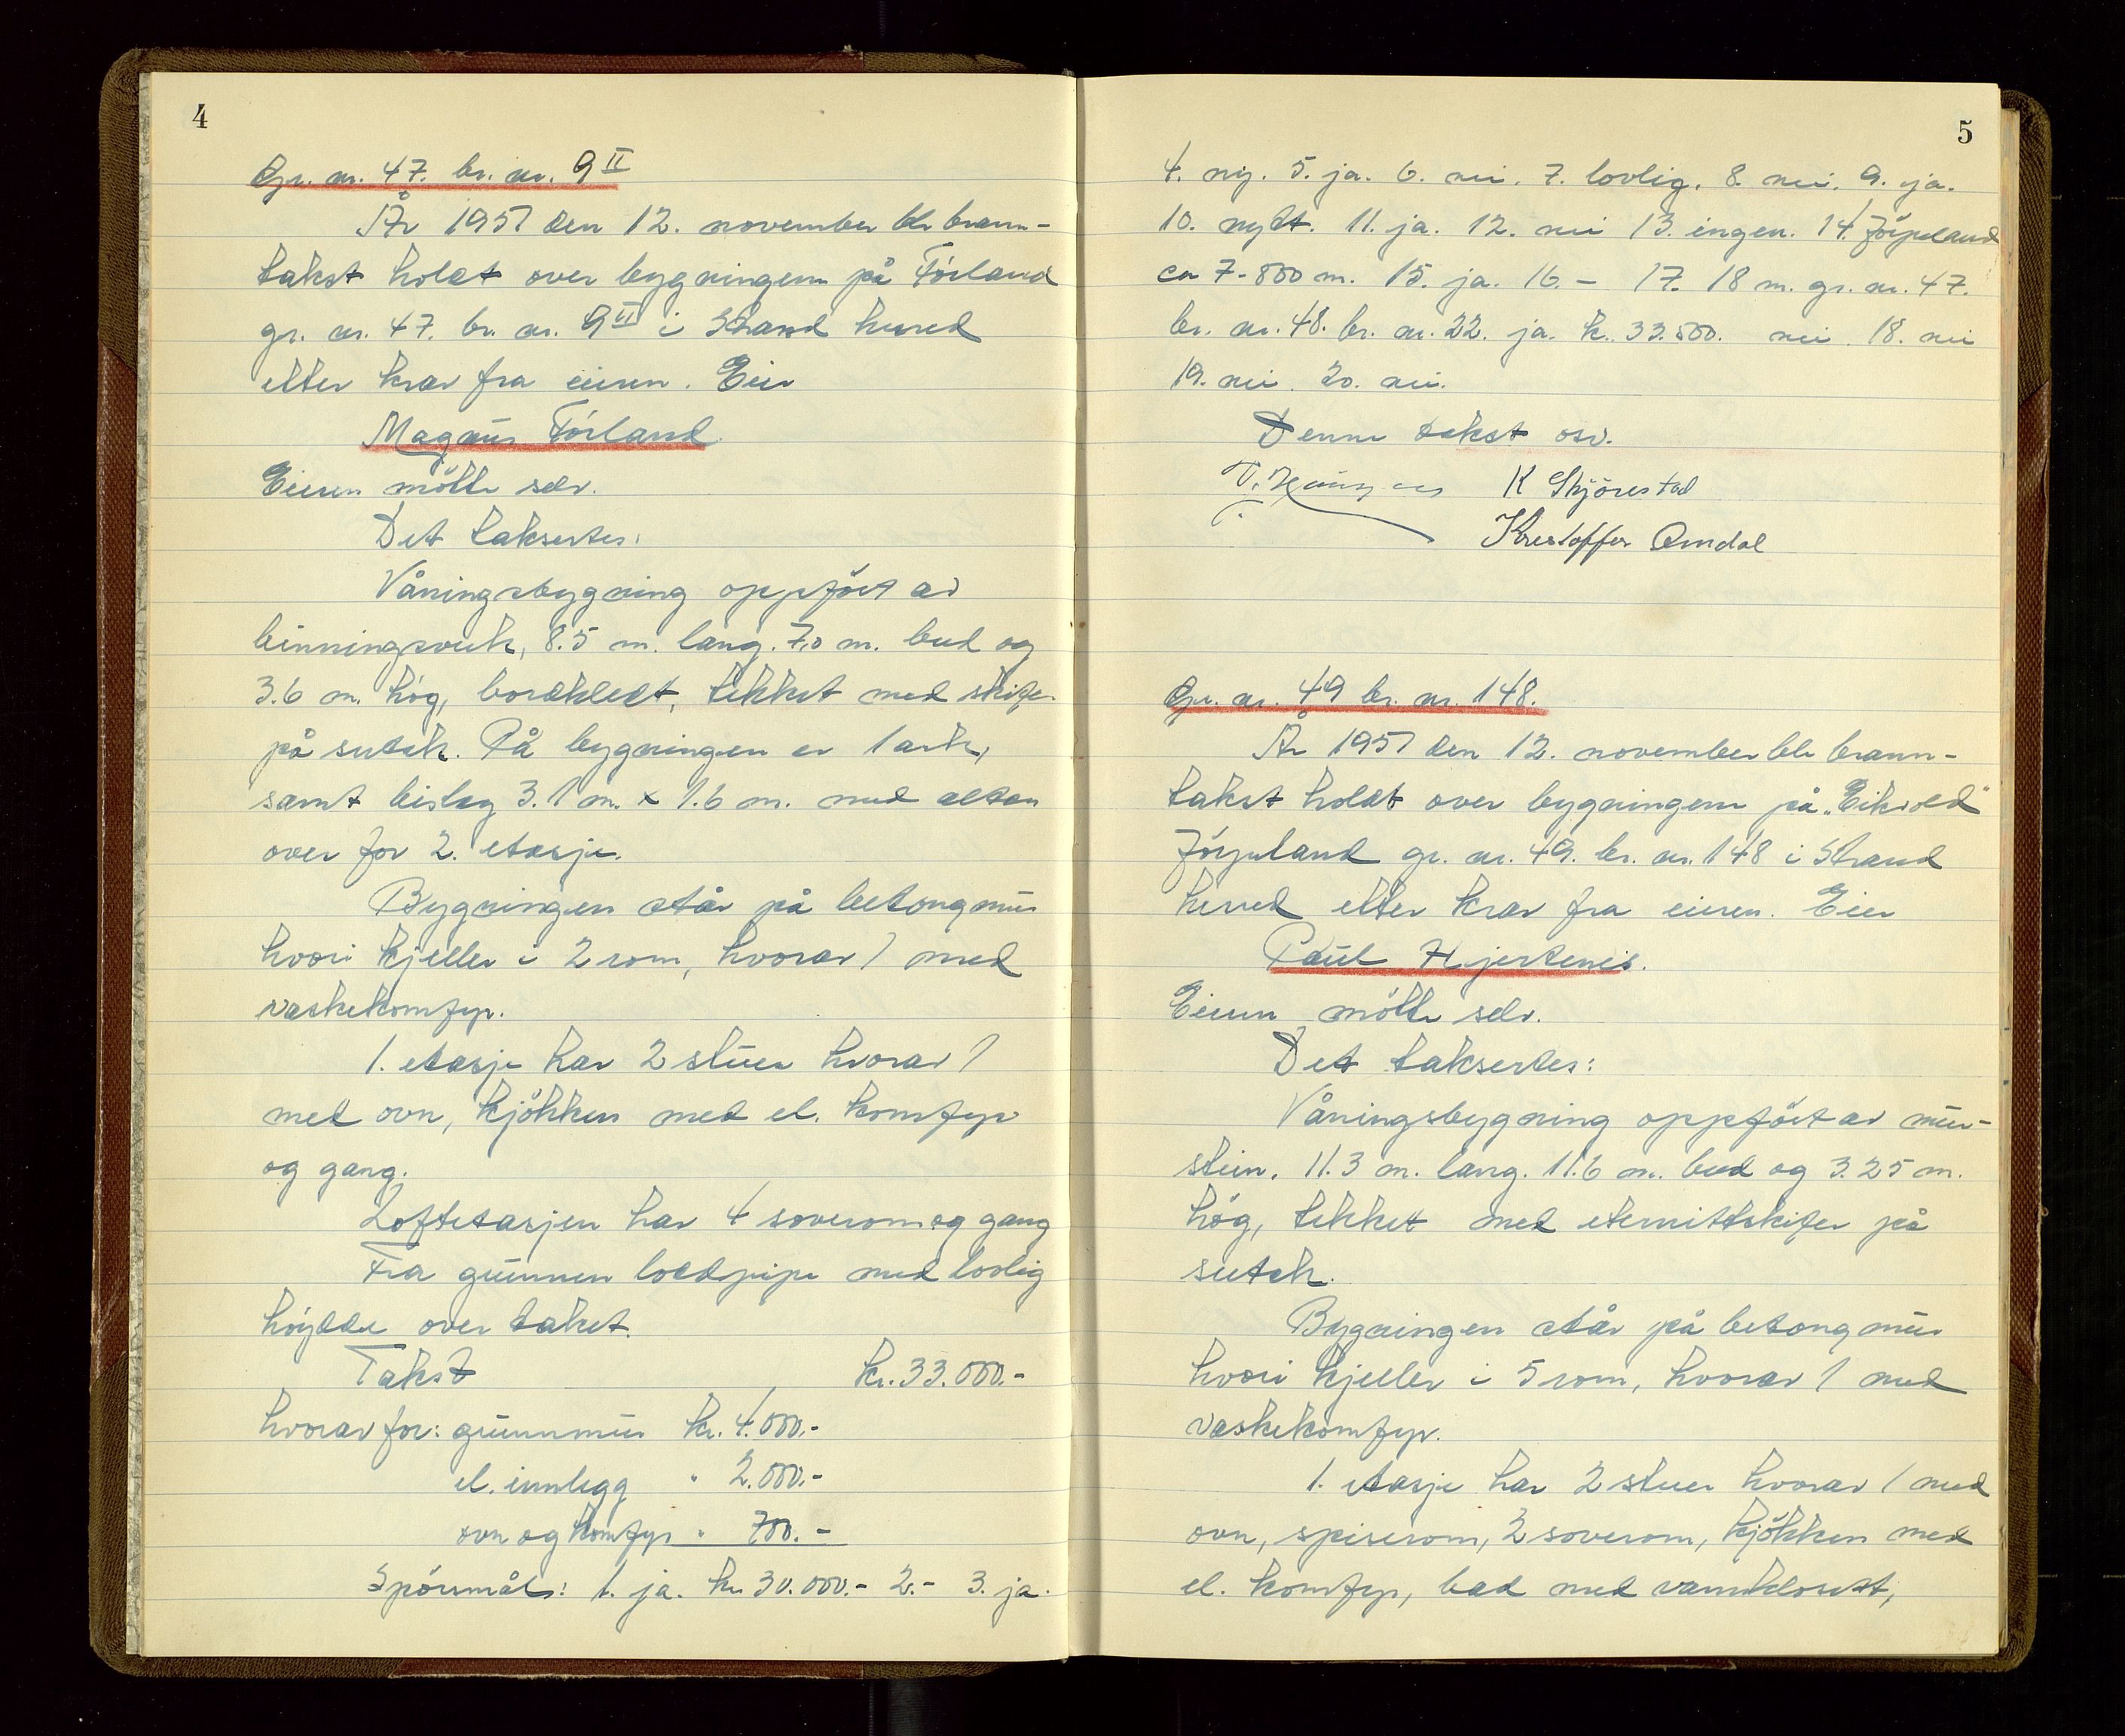 4
Gr. nr. 47. br. nr. 9 II
År 1957 den 12. november ble brann-
takst holdt over bygningene på Førland
gr. nr. 47. br. nr. 9 II i Strand herred
etter krav fra eieren. Eier
Magnus Førland.
Eieren møtte selv.
Det taksertes:
Våningsbygning oppført av
binningsverk, 8.5 m. lang. 7,0 m. bred og
3.6 m. høg, bordkledt, tekket med skifer
på sutak. På bygningen er 1 ark,
samt bislag 3.1 m. x 1.6 m. med altan
over for 2. etasje.
Bygningen står på betongmur
hvori kjeller i 2 rom, hvorav 1 med
vaskekomfyr.
1. etasje har 2 stuer hvorav 1
med ovn, kjøkken med el. komfyr
og gang.
Loftetasjen har 4 soverom og gang
Fra grunnen loddpipe med lovlig
høydde over taket.
Takst kr. 33.000.-
hvorav for: grunnmur kr. 4.000.-
el. innlegg " 2.000.-
ovn og komfyr " 700.-
Spørsmål: 1. ja. kr. 30.000.- 2.- 3. ja.
5
4. ny. 5. ja. 6. nei. 7. lovlig. 8. nei. 9. ja.
10. nytt. 11. ja. 12. nei 13. ingen. 14. Jørpeland
ca 7-800 m. 15. ja. 16. - 17. 18 m. gr. nr. 47.
br. nr. 48. br. nr. 22. ja. k. 33.500. nei. 18. nei
19. nei. 20. nei.
Denne takst osv.
K Skjørestad
Kristoffer Omdal
Gr. nr. 49 br. nr. 148.
År 1957 den 12. november ble brann-
takst holdt over bygningene på "Eikvold"
Jørpeland gr. nr. 49. br. nr. 148 i Strand
herred etter krav fra eieren. Eier
Paul Hjertenes.
Eieren møtte selv.
Det taksertes:
Våningsbygning oppført av mur-
stein. 11.3 m. lang. 11.6 m. bred og 3.25 m.
høg, tekket med eternittskifer på
sutak.
Bygningen står på betongmur
hvori kjeller i 5 rom, hvorav 1 med
vaskekomfyr.
1. etasje har 2 stuer hvorav 1 med
ovn, spiserom, 2 soverom, kjøkken med
el. komfyr, bad med vannklosett,